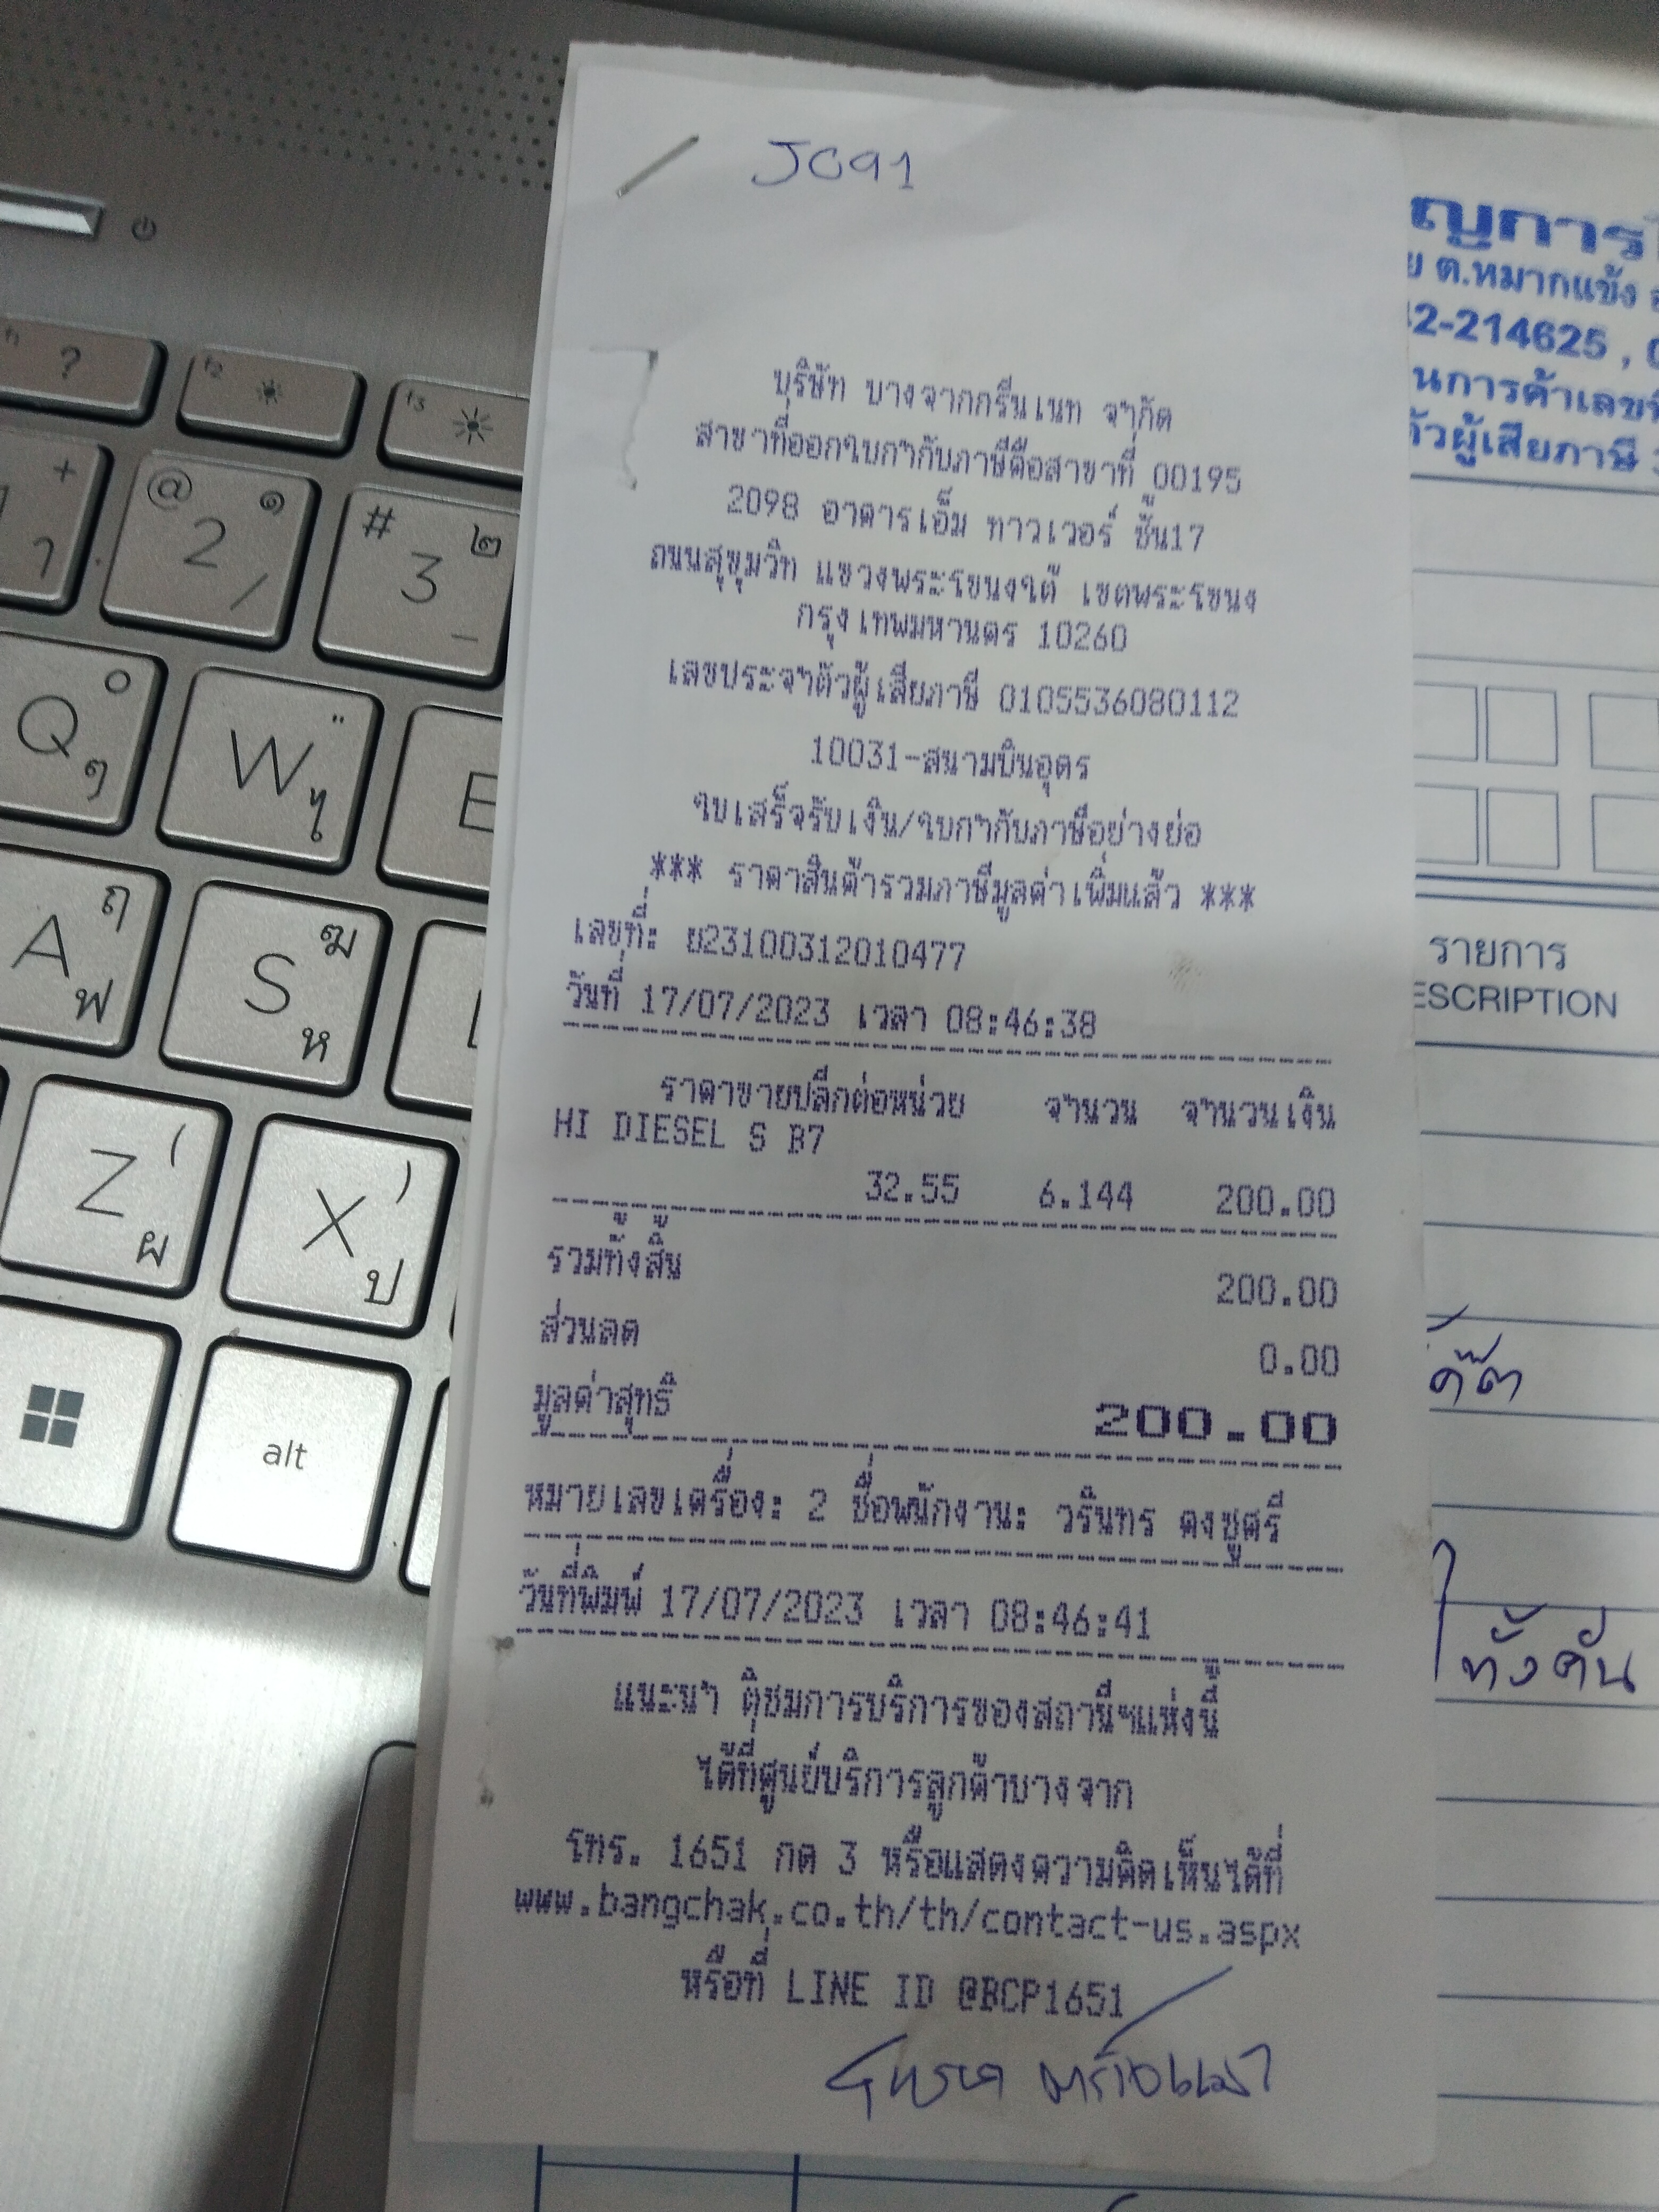 JC91
บริษัท บางจากกรีนเนท จำกัด
สาขาที่ออกใบกำกับภาษีคือสาขาที่ 00195
2098 อาคารเอ็ม ทาวเวอร์ ชั้น17
ถนนสุขุมวิท แขวงพระโขนงใต้ เขตพระโขนง
กรุงเทพมหานคร 10260
เลขประจำตัวผู้เสียภาษี 0105536080112
10031-สนามบินอุดร
ใบเสร็จรับเงิน/ใบกำกับภาษีอย่างย่อ
*** ราคาสินค้ารวมภาษีมูลค่าเพิ่มแล้ว ***
เลขที่: ย23100312010477
วันที่ 17/07/2023 เวลา 08:46:38
ราคาขายปลีกต่อหน่วย จำนวน จำนวนเงิน
HI DIESEL S B7
32.55 6.144 200.00
รวมทั้งสิ้น 200.00
ส่วนลด 0.00
มูลค่าสุทธิ 200.00
หมายเลขเครื่อง: 2 ชื่อพนักงาน: วรินทร คงชูศรี
วันที่พิมพ์ 17/07/2023 เวลา 08:46:41
แนะนำ ติชมการบริการของสถานีฯแห่งนี้
ได้ที่ศูนย์บริการลูกค้าบางจาก
โทร. 1651 กด 3 หรือแสดงความคิดเห็นได้ที่
www.bangchak.co.th/th/contact-us.aspx
หรือที่ LINE ID @BCP1651
ญการ
ย ต.หมากแข้ง
42-214625 , 0
นการค้าเลข
ตัวผู้เสียภาษี
รายการ
ESCRIPTION
ทั้งคัน
? f1
f2
f3
+
@ ๑
2 /
# ๒
3 _
Q ๐ ๆ
W " ไ
E
A ฤ ฟ
S ฆ ห
Z ( ผ
X ) ป
alt